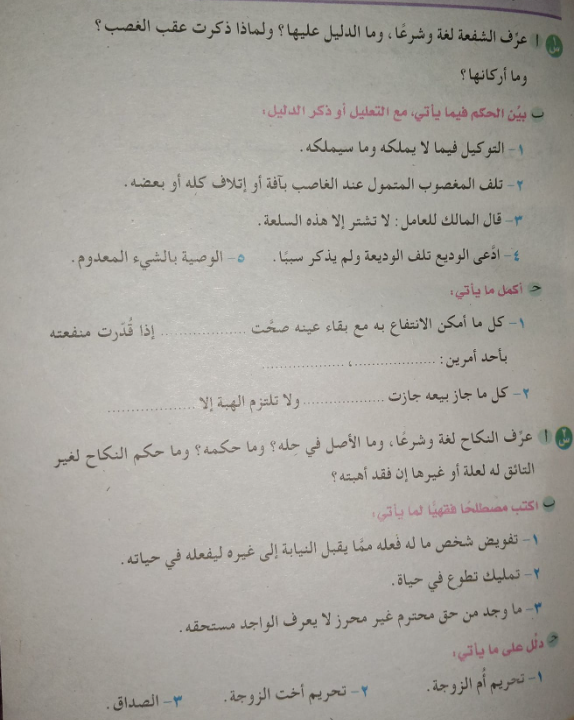 س١ أ عرّف الشفعة لغة وشرعًا، وما الدليل عليها؟ ولماذا ذكرت عقب الغصب؟
وما أركانها؟
ب بيّن الحكم فيما يأتي، مع التعليل أو ذكر الدليل:
١- التوكيل فيما لا يملكه وما سيملكه.
٢- تلف المغصوب المتمول عند الغاصب بآفة أو إتلاف كله أو بعضه.
٣- قال المالك للعامل: لا تشتر إلا هذه السلعة.
٤- ادّعى الوديع تلف الوديعة ولم يذكر سببًا. ٥- الوصية بالشيء المعدوم.
جـ أكمل ما يأتي:
١- كل ما أمكن الانتفاع به مع بقاء عينه صحَّت .................... إذا قُدّرت منفعته
بأحد أمرين: ....................، ....................
٢- كل ما جاز بيعه جازت .................... ولا تلتزم الهبة إلا ....................
س٢ أ عرّف النكاح لغة وشرعًا، وما الأصل في حِله؟ وما حكمه؟ وما حكم النكاح لغير
التائق له لعلة أو غيرها إن فقد أهبته؟
ب اكتب مصطلحًا فقهيًّا لما يأتي:
١- تفويض شخص ما له فعله ممَّا يقبل النيابة إلى غيره ليفعله في حياته.
٢- تمليك تطوع في حياة.
٣- ما وجد من حق محترم غير محرز لا يعرف الواجد مستحقه.
جـ دلّل على ما يأتي:
١- تحريم أُم الزوجة. ٢- تحريم أخت الزوجة. ٣- الصداق.